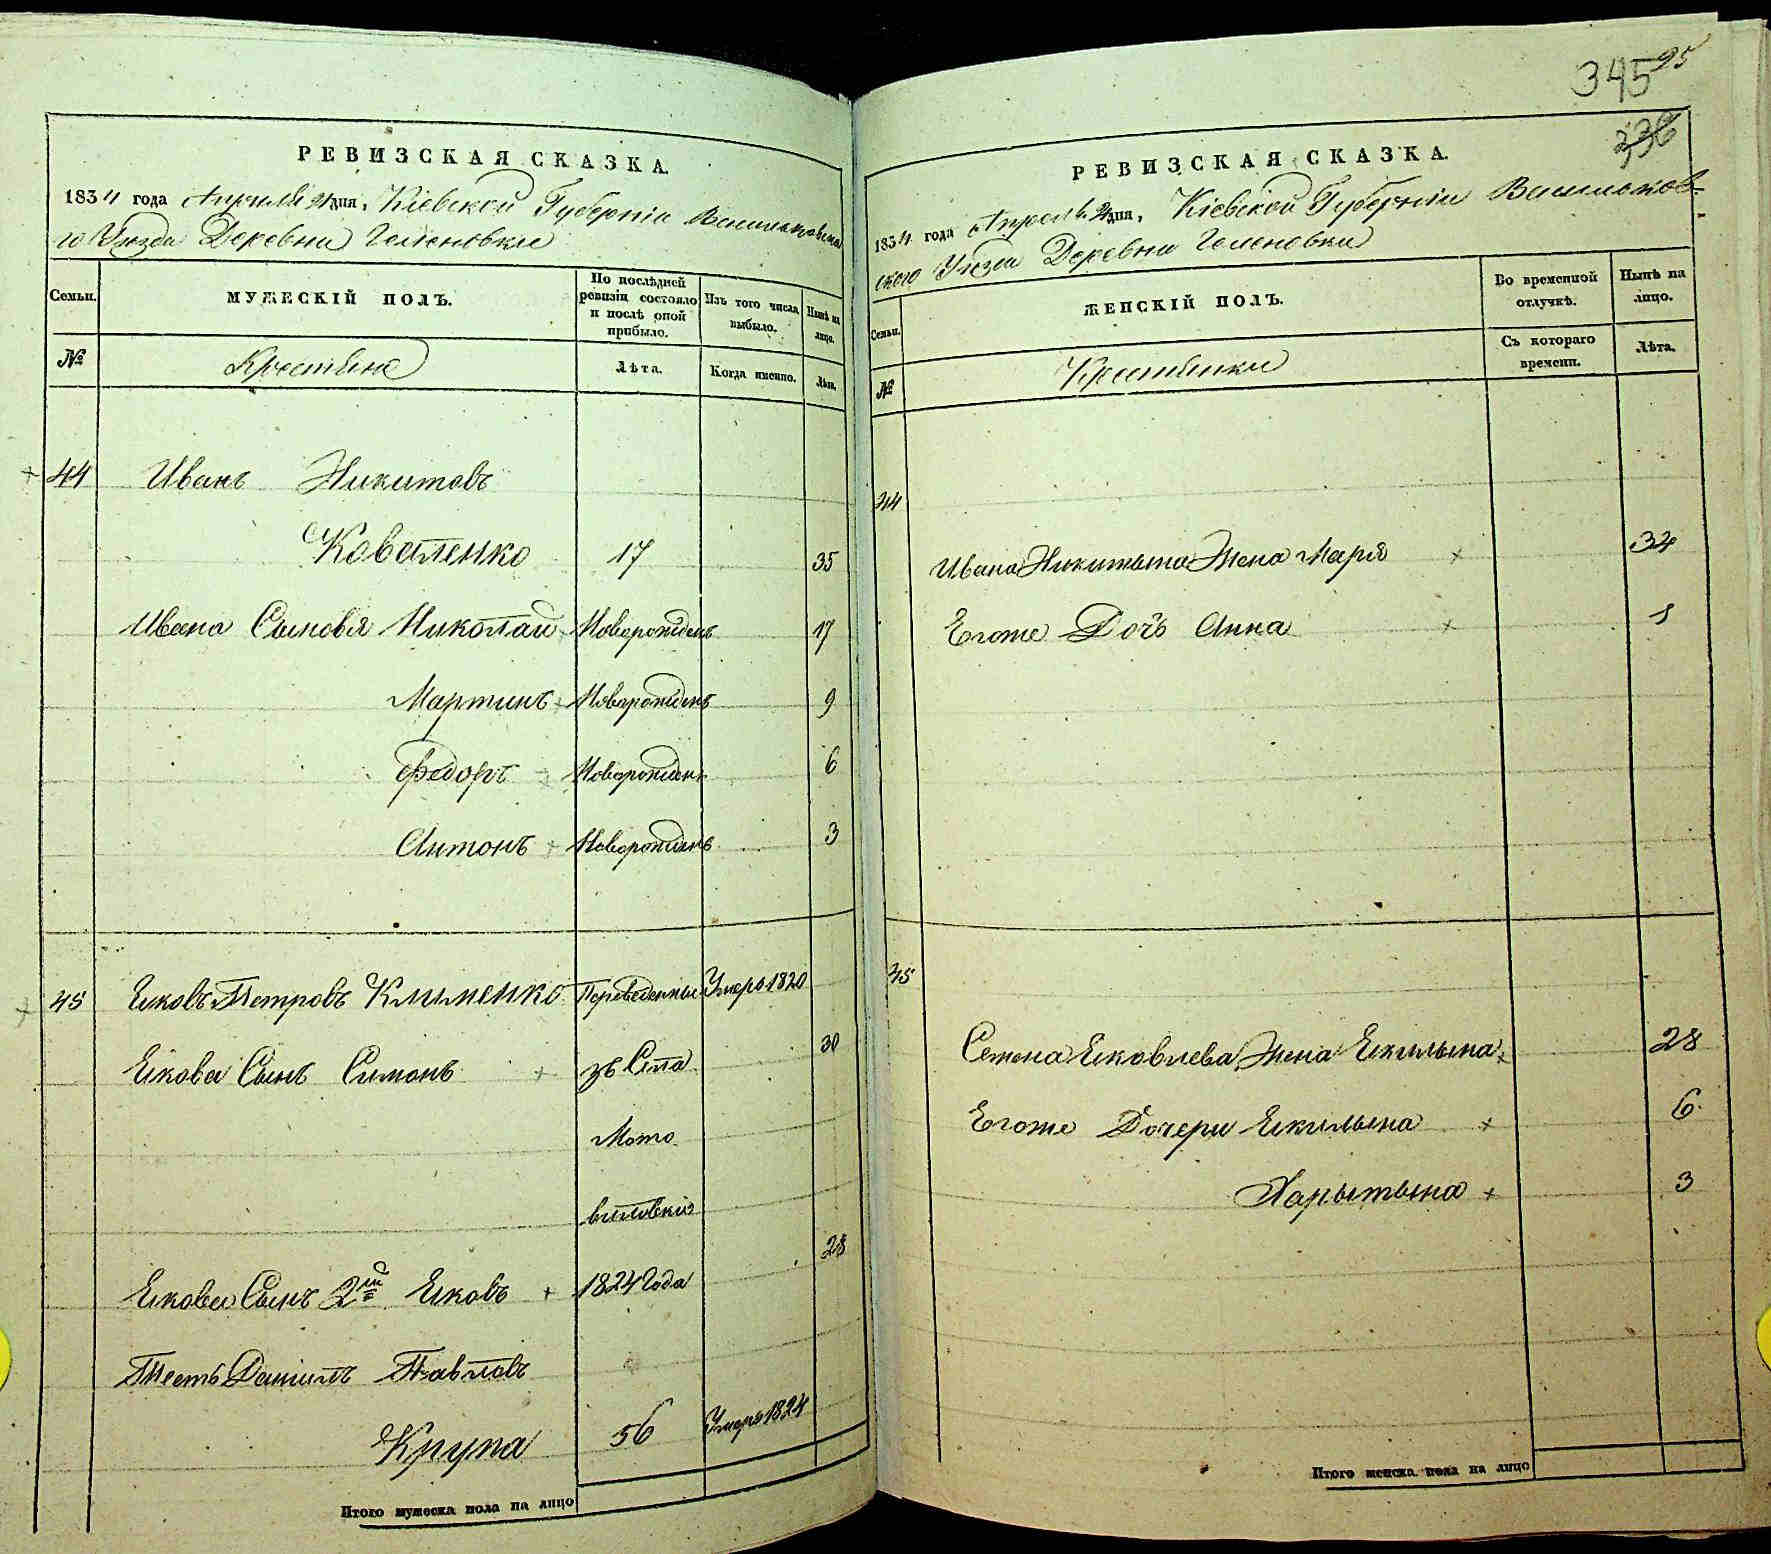 РЕВИЗСКАЯ СКАЗКА.
1834 года Апреля 21 дня, Кіевской Губерніи Васильковска
го Уезда Деревни Геленовки
Семьи.
МУЖЕСКІЙ ПОЛЪ.
По послѣдней ревизіи состояло и послѣ оной прибыло.
Изъ того числа выбыло.
Нынѣ на лицо.
№
Крестьяне
Лѣта.
Когда именно.
Лѣта.
44 Иванъ Никитовъ
Коваленко 17 35
Ивана Сыновя Николай Новорожденъ 17
Мартинъ Новорожденъ 9
Федоръ Новорожденъ 6
Антонъ Новорожденъ 3
45 Яковъ Петровъ Клименко Переведенные Умеръ 1820
Якова Сынъ Симонъ зъ Села 30
Мото
виловки
28
Якова Сынъ 2й Яковъ 1824 Года
Тесть Данилъ Павловъ
Крупа 56 Умеръ 1824
Итого мужеска пола на лицо
345 95
336
РЕВИЗСКАЯ СКАЗКА.
1834 года Апреля 21 дня, Кіевской Губерніи Васильков-
ского Уезда Деревни Геленовки
Семьи.
ЖЕНСКІЙ ПОЛЪ.
Во временной отлучкѣ.
Нынѣ на лицо.
№
Крестьянки
Съ котораго времени.
Лѣта.
44
Ивана Никитына Жена Марія 32
Егоже Дочь Анна 1
45
Семена Яковлева Жена Якилына 28
Егоже Дочери Якилына 6
Харытына 3
Итого женска пола на лицо